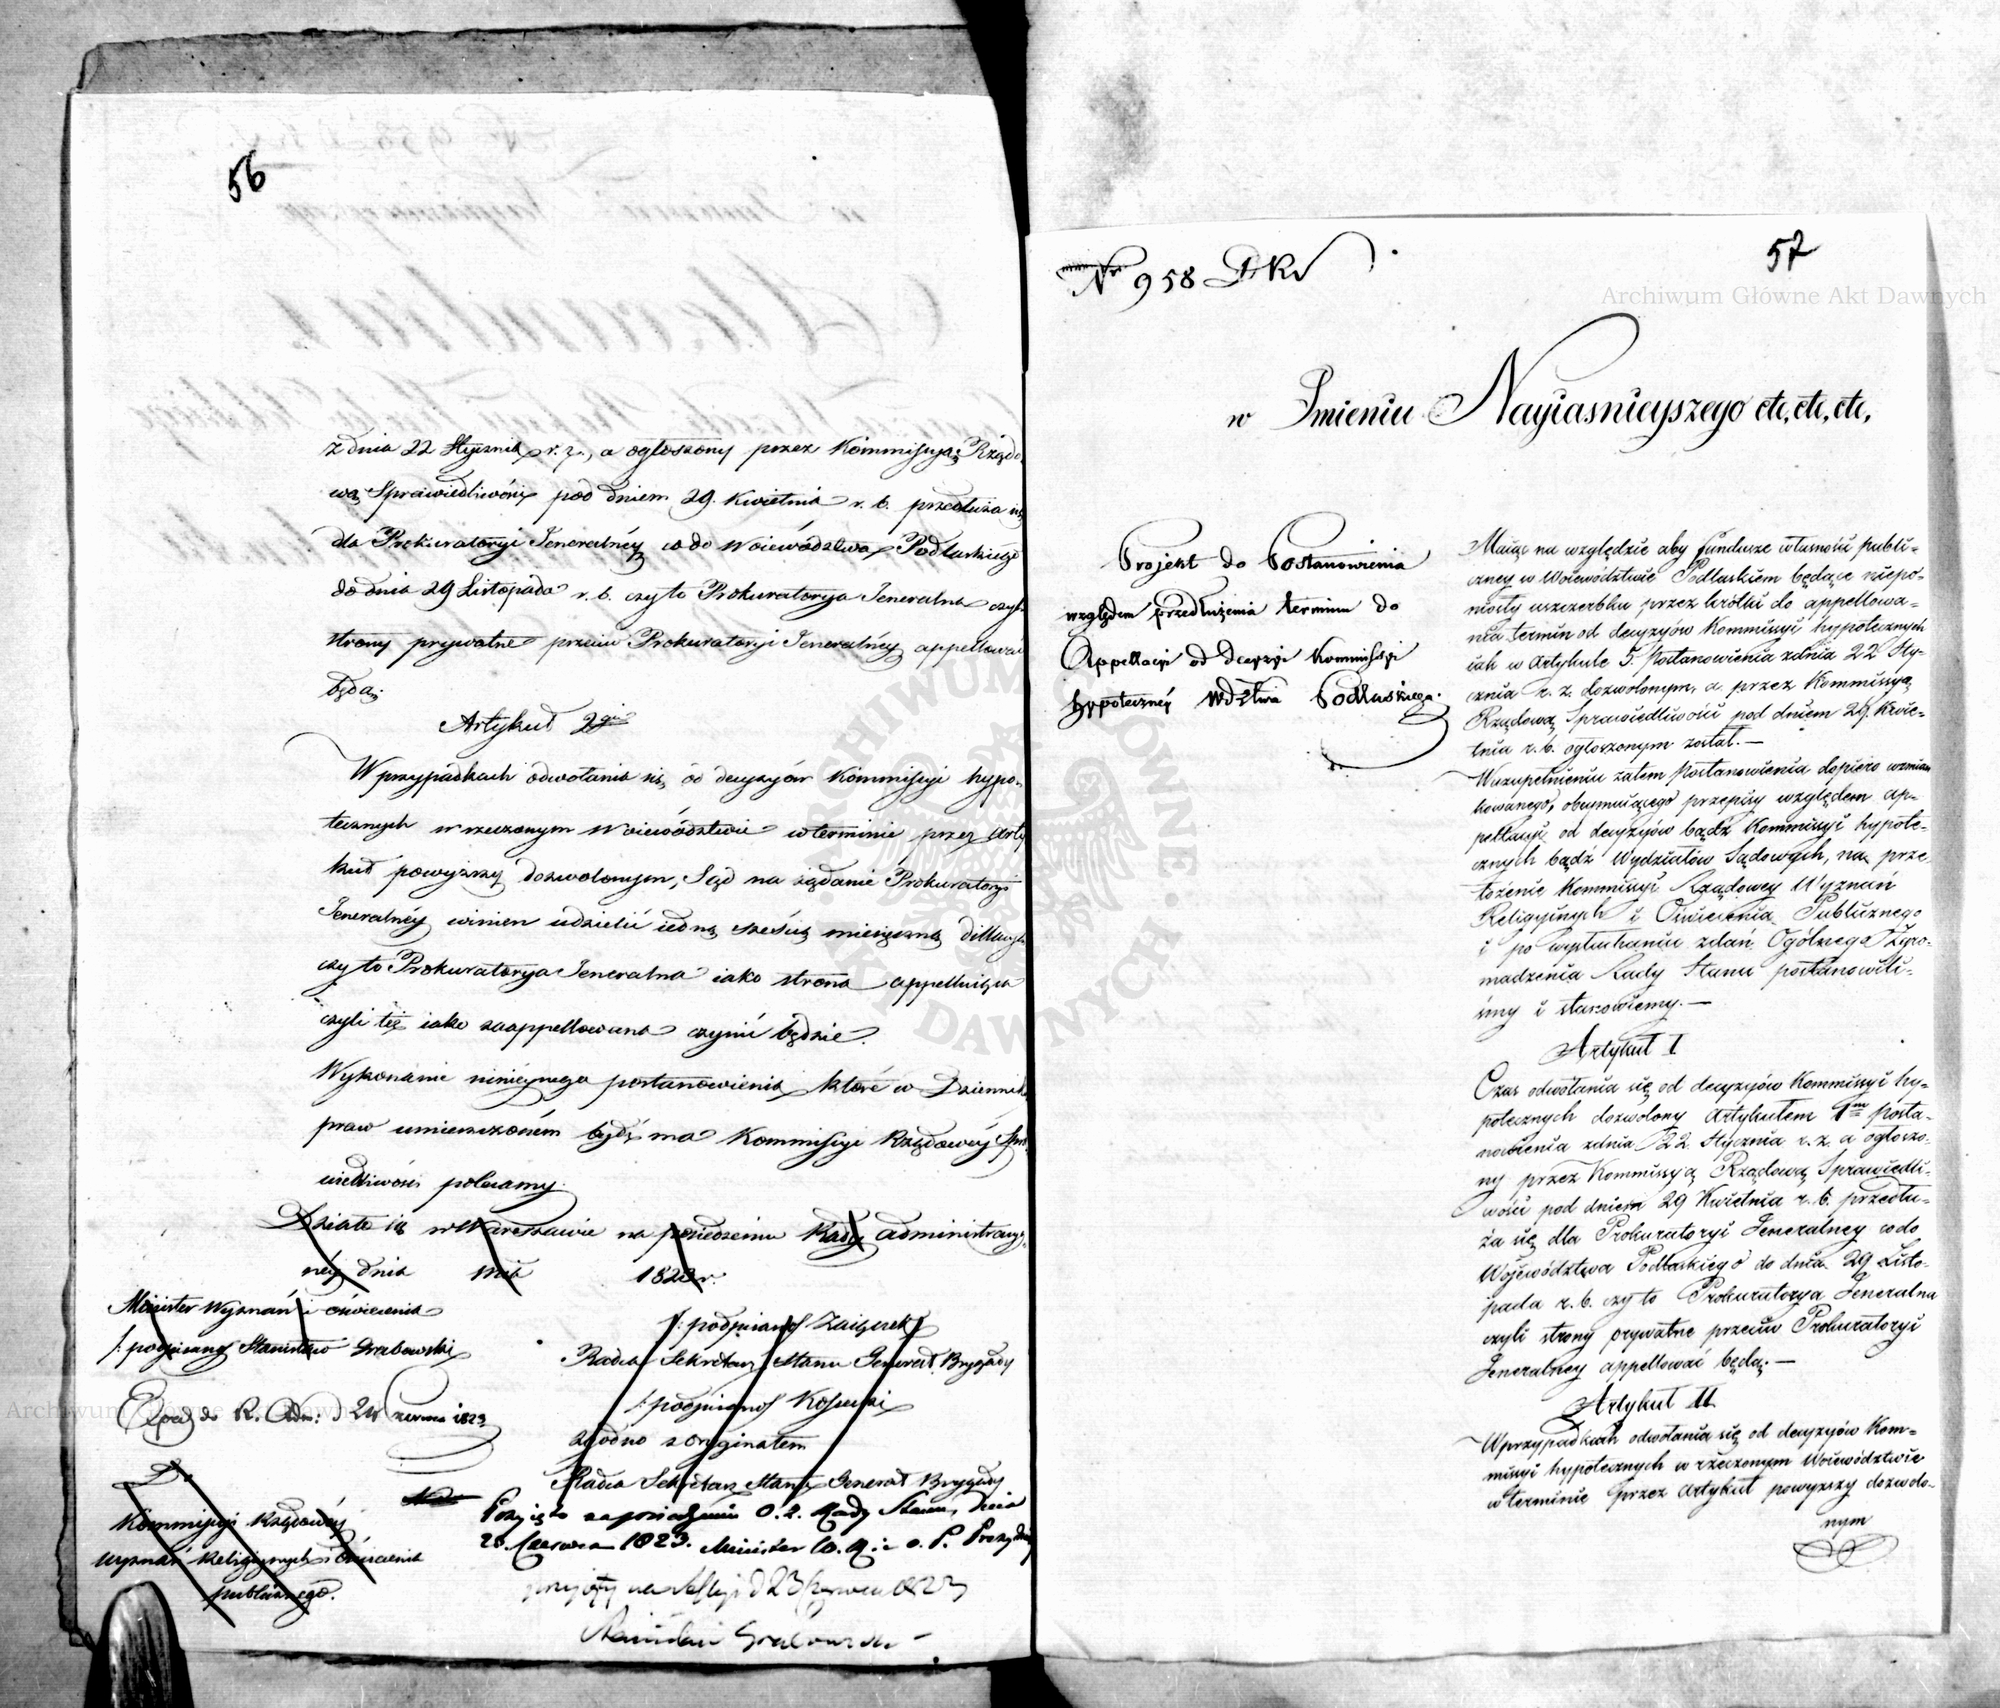 56
z dnia 22 Stycznia r. z., a ogłoszony przez Kommissyą Rządo
wą Sprawiedliwości pod dniem 29. Kwietnia r. b. przedłuża się
dla Prokuratoryi Jeneralnéy co do Woiewództwa Podlaskiego
do dnia 29 Listopada r. b. czy to Prokuratorya Jeneralna czyli
strony prywatne przeciw Prokuratoryi Jeneralnéy appellować
będą.
Artykuł 2gi
W przypadkach odwołania się od decyzyów Kommissyi hypo-
tecznych w rzeczonym Woiewództwie w terminie przez Arty
kuł powyższy dozwolonym, Sąd na żądanie Prokuratoryi
Jeneralnéy winien udzielić iedną sześcio miesięczną dillacyą
czy to Prokuratorya Jeneralna iako strona appellująca
czyli też iako zaappellowana czynić będzie.
Wykonanie ninieyszego postanowienia które w Dzienniku
praw umieszczoném bydź ma Kommissyi Rządowéy Spra
wiedliwości polecamy.
Działo się w Warszawie na posiedzeniu Rady Administracyi-
néy dnia mca 1823 r.
Minister Wyznań i oświecenia
/: podpisany Stanisław Grabowski
/: podpisano/ Zaiączek
Radca Sekretarz Stanu Generał Brygady
/: podpisano/ Kossecki
Exped do R. Adm: d 24 czerwca 1823
zgodno z oryginałem
Radca Sekretarz Stanu Generał Brygady
Do
Kommissyi Rządowéy
wyznań Religiynych i Oświecenia
publicznego.
Przyięto na posiedzeniu O. Z. Rady Stanu, dnia
28. Czerwca 1823. Minister W. R. i O. P. Prezyduj
przyięty na d 23 Czerwca 1823
Stanisław Grabowski
57
Nr 958 DKr
w Imieniu Nayiaśnieyszego etc, etc, etc,
Projekt do Postanowienia
względem przedłużenia terminu do
Appellacyi od decyzyi Kommissyi
hypotecznéy Wdztwa Podlaskiego.
Maiąc na względzie aby fundusze własności publi-
czney w Woiewództwie Podlaskiem będące niepo-
niosły uszczerbku przez krótki do appellowa-
nia termin od decyzyów Kommissyi hypotecznych
iak w Artykule I. Postanowienia z dnia 22 Sty-
cznia r. z. dozwolonym, a przez Kommissyą
Rządową Sprawiedliwości pod dniem 29. Kwie-
tnia r. b. ogłoszonym został. —
W uzupełnieniu zatem Postanowienia dopiero wzmian
kowanego, obeymuiącego przepisy względem ap-
pellacyi od decyzyów bądź Kommissyi hypote-
cznych bądź Wydziałów Sądowych, na prze
łożenie Kommissyi Rządowey Wyznań
Religiynych i Oświecenia Publicznego
i po wysłuchaniu zdań Ogólnego Zgro-
madzenia Rady Stanu postanowili-
śmy i stanowiemy. —
Artykuł I
Czas odwołania się od decyzyów Kommissyi hy-
potecznych dozwolony Artykułem 1m Posta-
nowienia z dnia 22 Stycznia r. z. a ogłoszo-
ny przez Kommissyą Rządową Sprawiedli-
wości pod dniem 29 Kwietnia r. b. przedłu-
ża się dla Prokuratoryi Jeneralney co do
Województwa Podlaskiego do dnia 29 Listo-
pada r. b. czy to Prokuratorya Jeneralna
czyli strony prywatne przeciw Prokuratoryi
Jeneralney appellować będą. —
Artykuł II.
W przypadkach odwołania się od decyzyów Kom-
missyi hypotecznych w rzeczonym Woiewództwie
w terminie przez Artykuł powyższy dozwolo-
nym
Archiwum Główne Akt Dawnych